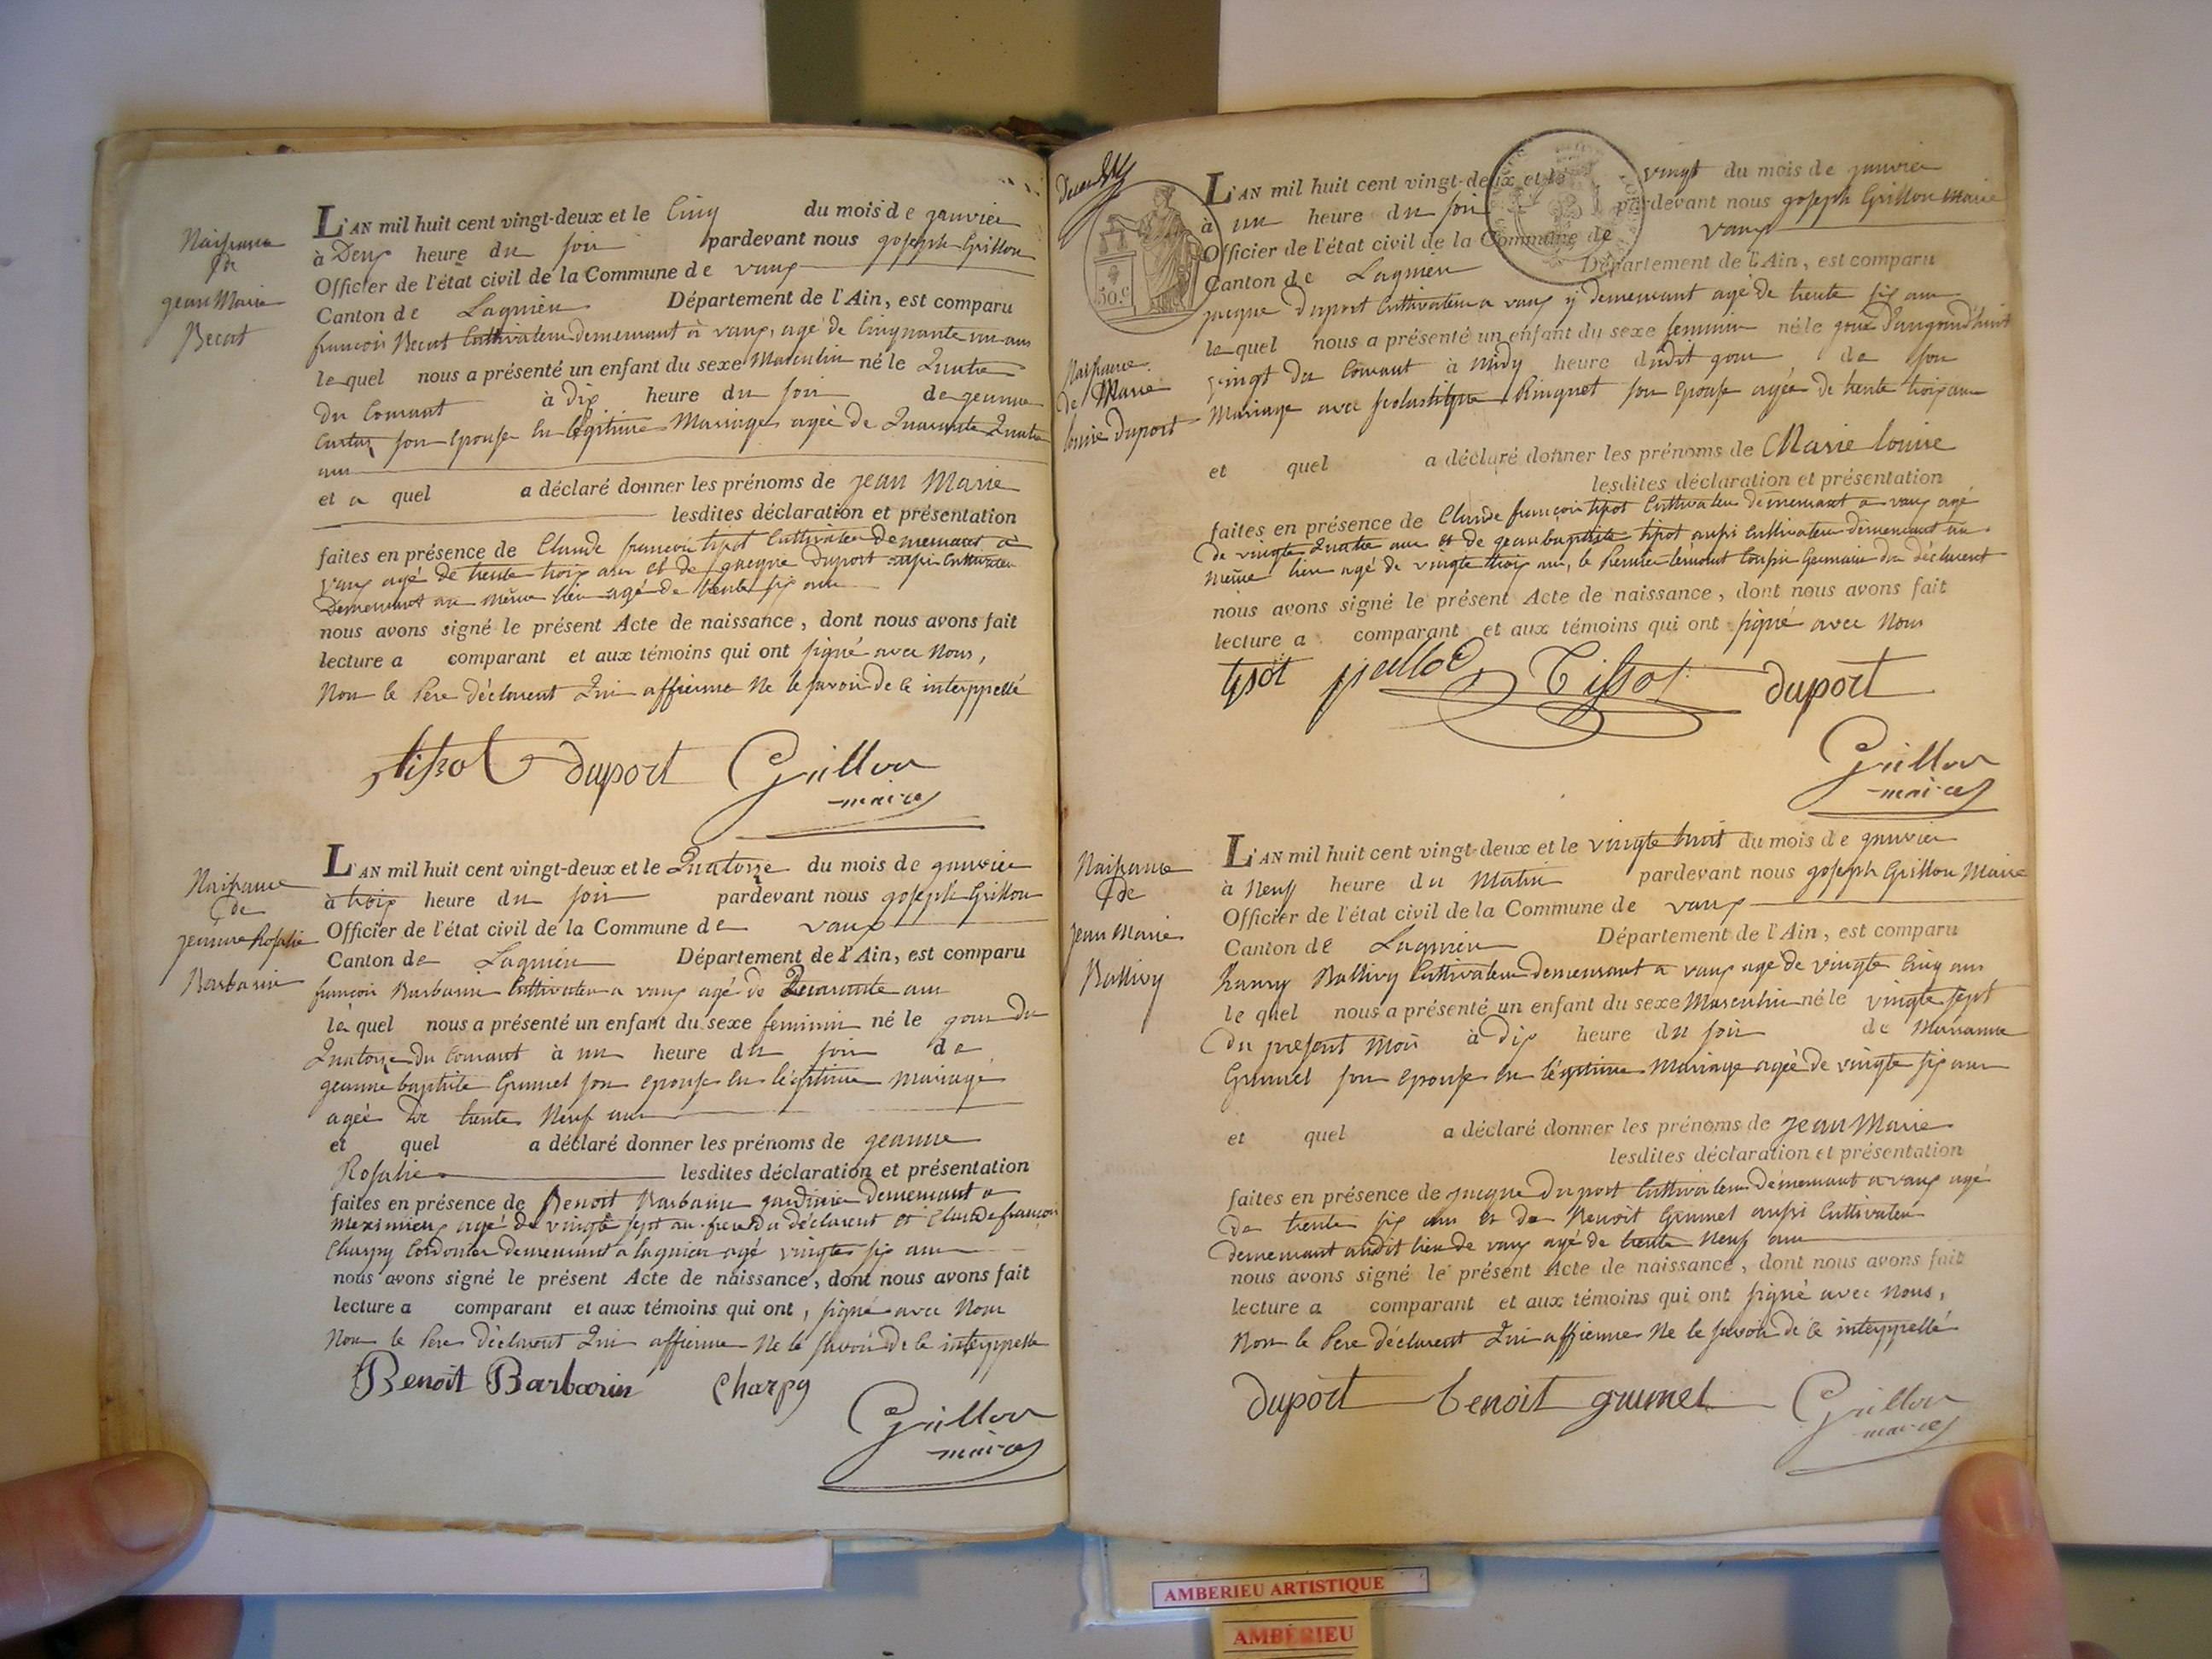 Naissance
de
jean Marie
Becat
L'AN mil huit cent vingt-deux et le Cinq du mois de janvier
à Deux heure du soir pardevant nous joseph Grillon
Officier de l'état civil de la Commune de vaux
Canton de Lagnieu Département de l'Ain, est comparu
francois Becat Cultivateur demeurant à vaux, agé de Cinquante un ans
lequel nous a présenté un enfant du sexe Masculin né le Quatre
du Courant à dix heure du soir de jeanne
son Epouse en légitime Mariage agée de Quarante Quatre
ans
et a quel a déclaré donner les prénoms de jean Marie
lesdites déclaration et présentation
faites en présence de Claude francois tisot Cultivateur demeurant à
vaux agé de trente trois ans et de jacque Duport aussi Cultivateur
Demeurant au même lieu agé de trente six ans
nous avons signé le présent Acte de naissance, dont nous avons fait
lecture a comparant et aux témoins qui ont signé avec Nous,
Non le Pere déclarent Qui affierme Ne le savoir de ce interppellé
tissot duport Grillon
maire
Naissance
de
jeanne Rosalie
Barbarin
L'AN mil huit cent vingt-deux et le Quatorze du mois de janvier
à trois heure du soir pardevant nous joseph Grillon
Officier de l'état civil de la Commune de vaux
Canton de Lagnieu Département de l'Ain, est comparu
francois Barbarin Cultivateur a vaux agé de Quarante ans
lequel nous a présenté un enfant du sexe feminin né le jour du
Quatorze du Courant à un heure du soir de
jeanne baptiste Grumel son epouse en légitime mariage
agée De trente Neuf ans
et quel a déclaré donner les prénoms de jeanne
Rosalie lesdites déclaration et présentation
faites en présence de Benoit Barbarin demeurant a
meximieux agé de vingte sept an frere du déclarent et Claude francois
Charpy Cordonier demeurant a lagnieu agé vingte six ans
nous avons signé le présent Acte de naissance, dont nous avons fait
lecture a comparant et aux témoins qui ont, signé avec Nous
Non le Pere déclarent Qui affierme Ne le savoir de ce interppellé
Benoit Barbarin Charpy
Grillon
maire
L'AN mil huit cent vingt-deux et le vingt du mois de janvier
à un heure du soir pardevant nous joseph Grillon Maire
Officier de l'état civil de la Commune de vaux
Canton de Lagnieu Département de l'Ain, est comparu
50.c
jacque Duport Cultivateur a vaux y demeurant agé de trente six ans
lequel nous a présenté un enfant du sexe feminin né le jour D'aujourd'huit
Naissance
de Marie
louise duport
vingt du Courant à midy heure dudit jour de son
Mariage avec scolastique Ringuet son Epouse agée de trente trois ans
et quel a déclaré donner les prénoms de Marie louise
lesdites déclaration et présentation
faites en présence de Claude francois tisot Cultivateur demeurant a vaux agé
de vingte Quatre ans et de jean baptiste tisot aussi Cultivateur demeurant au
même lieu agé de vingte trois ans, le Premier témoint Coussin Germain du déclarent
nous avons signé le présent Acte de naissance, dont nous avons fait
lecture a comparant et aux témoins qui ont signé avec Nous
tisot Tissot duport
Grillon
maire
Naissance
de
jean Marie
Ballivy
L'AN mil huit cent vingt-deux et le vingte huit du mois de janvier
à Neuf heure du Matin pardevant nous joseph Grillon Maire
Officier de l'état civil de la Commune de vaux
Canton de Lagnieu Département de l'Ain, est comparu
Ballivy Cultivateur demeurant a vaux agé de vingte Cinq ans
lequel nous a présenté un enfant du sexe Masculin né le vingte sept
du present mois à dix heure du soir de Marianne
Grumel son epouse en légitime Mariage agée de vingte six ans
et quel a déclaré donner les prénoms de jean Marie
lesdites déclaration et présentation
faites en présence de jacque Duport Cultivateur demeurant a vaux agé
de trente six ans et de Benoit Grumel aussi Cultivateur
demeurant audit lieu de vaux agé de trente Neuf ans
nous avons signé le présent Acte de naissance, dont nous avons fait
lecture a comparant et aux témoins qui ont signé avec Nous,
Non le Pere déclarent Qui affierme Ne le savoir de ce interppellé
duport benoit grumel Grillon
maire
AMBERIEU ARTISTIQUE
AMBÉRIEU